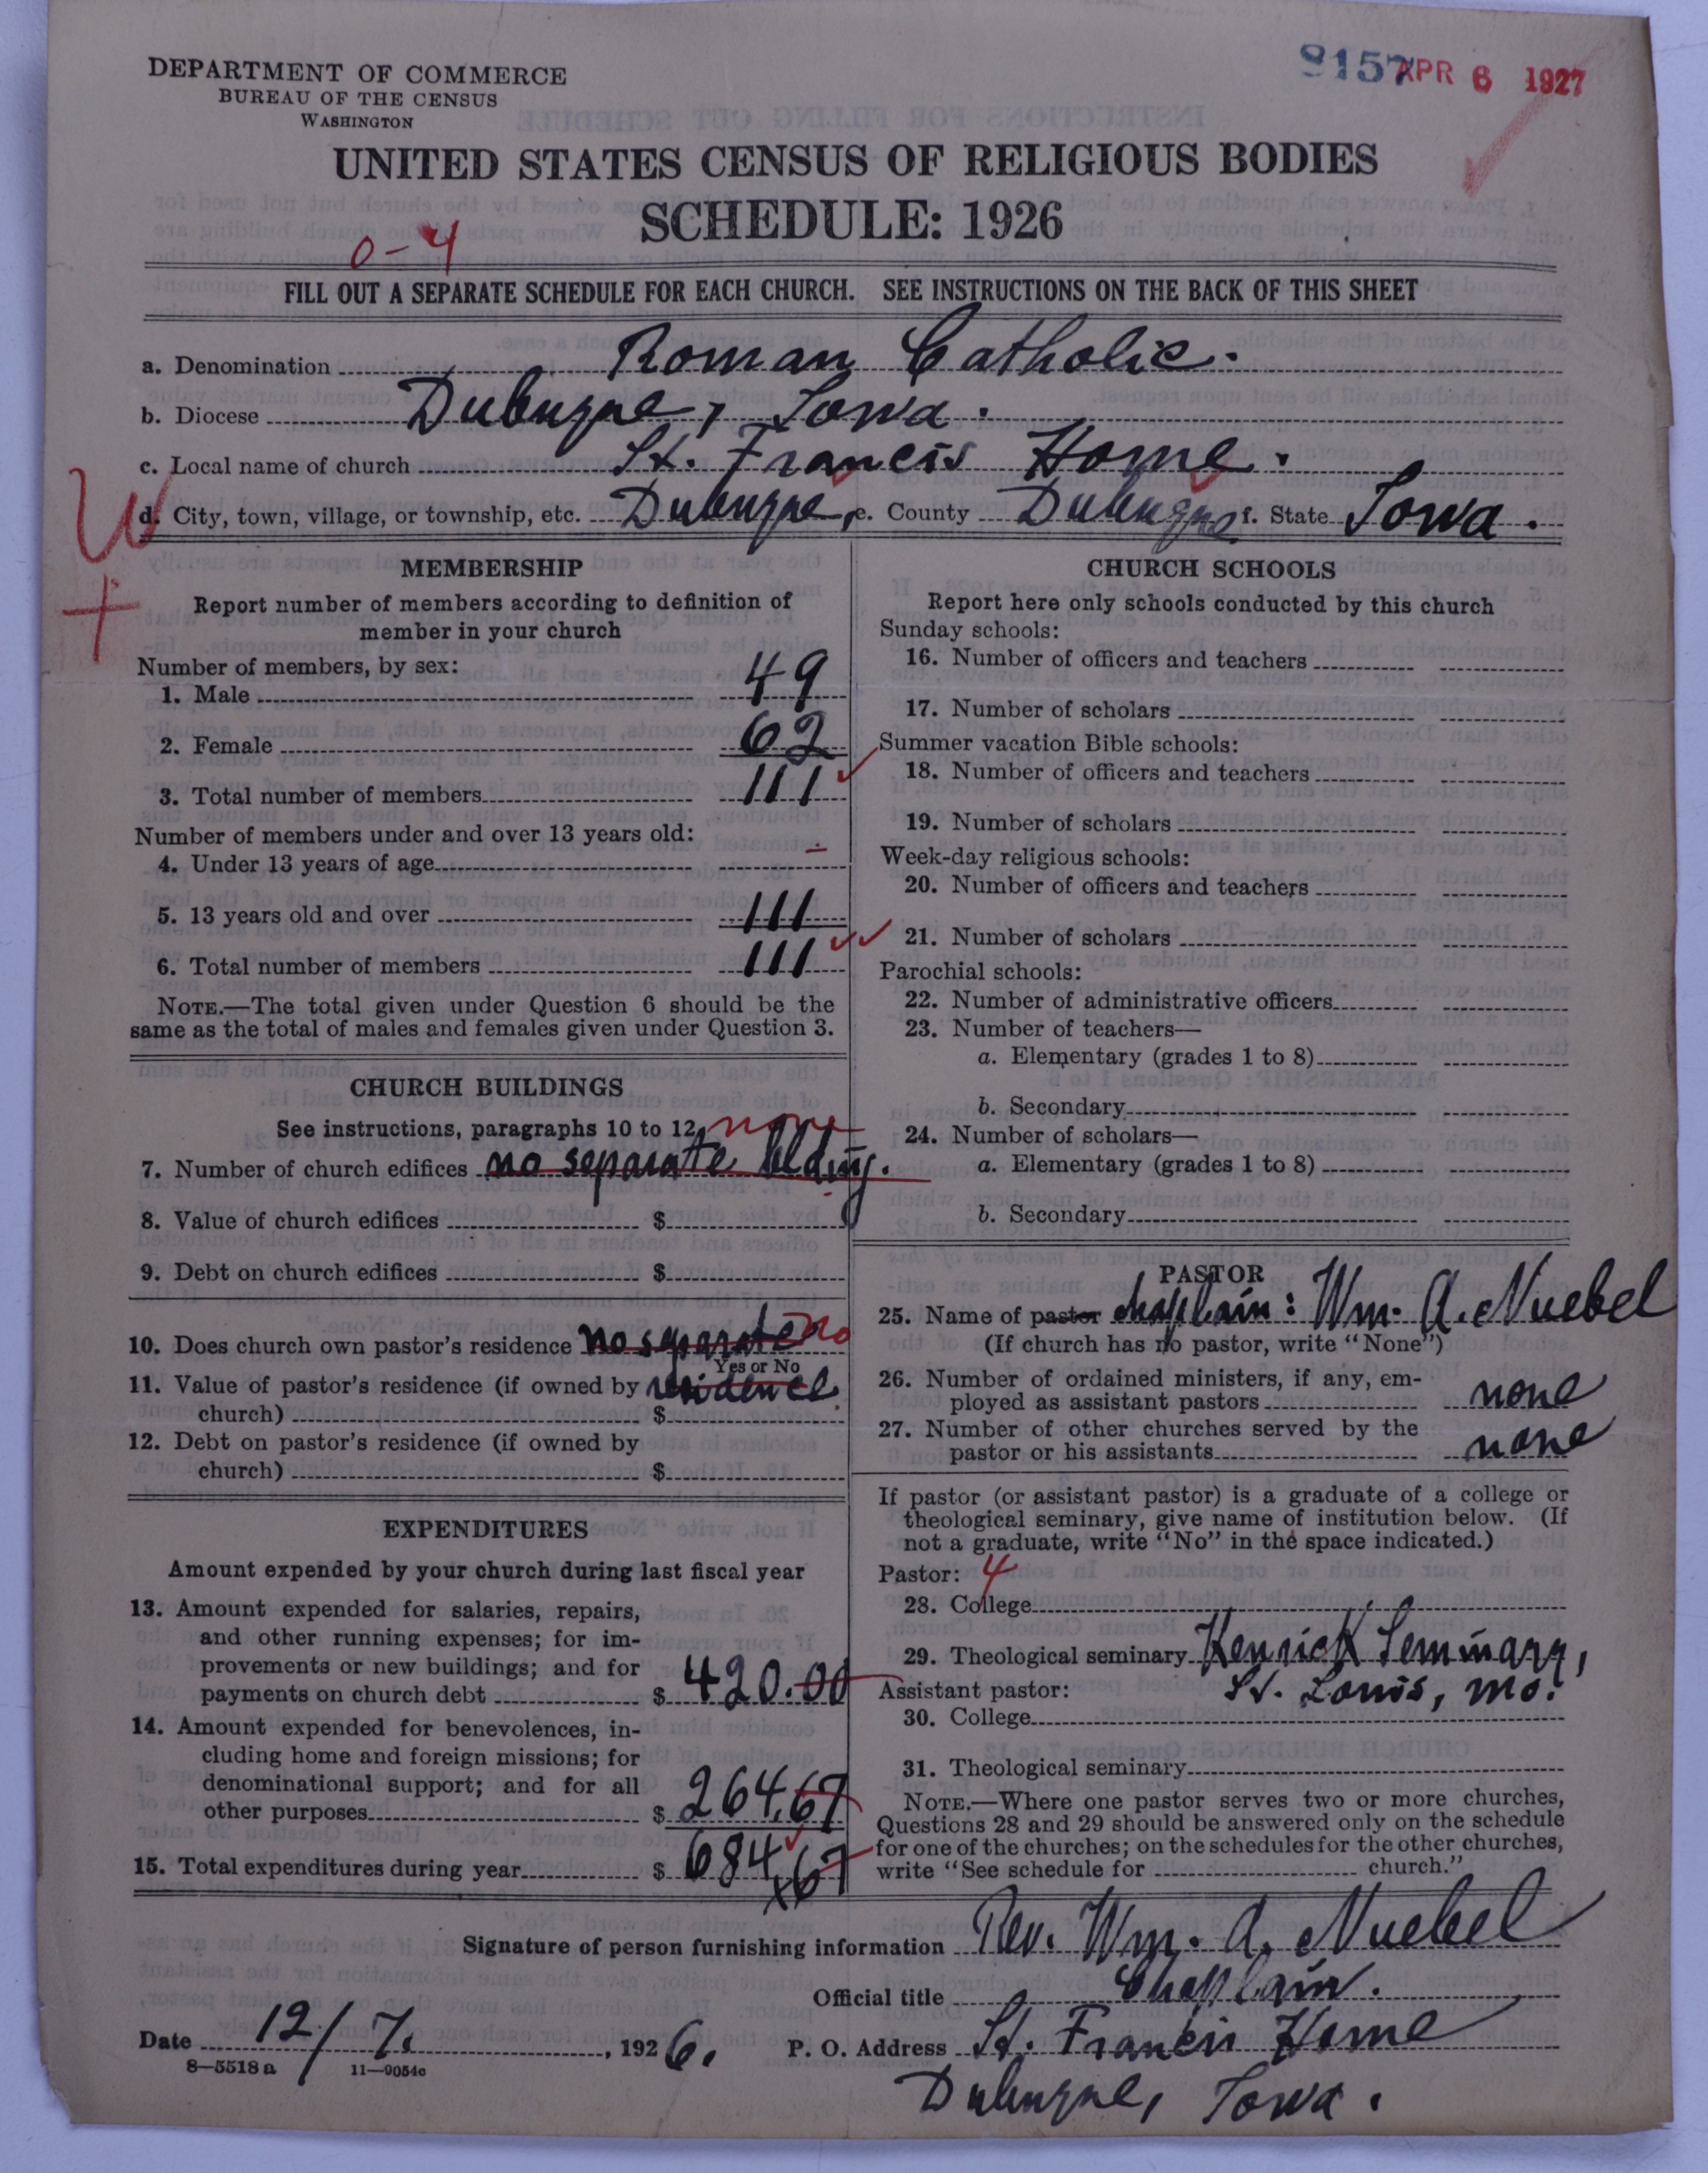 DEPARTMENT OF COMMERCE
BUREAU OF THE CENSUS
WASHINGTON
9157 APR 6 1927
UNITED STATES CENSUS OF RELIGIOUS BODIES
SCHEDULE: 1926
0-4
FILL OUT A SEPARATE SCHEDULE FOR EACH CHURCH. SEE INSTRUCTIONS ON THE BACK OF THIS SHEET
a. Denomination Roman Catholic.
b. Diocese Dubuque, Iowa.
c. Local name of church St. Francis Home.
d. City, town, village, or township, etc. Dubuque, e. County Dubuque f. State Iowa.
W
+
MEMBERSHIP
Report number of members according to definition of
member in your church
Number of members, by sex:
1. Male 49
2. Female 62
3. Total number of members 111
Number of members under and over 13 years old:
4. Under 13 years of age -
5. 13 years old and over 111
6. Total number of members 111
NOTE.—The total given under Question 6 should be the
same as the total of males and females given under Question 3.
CHURCH BUILDINGS
See instructions, paragraphs 10 to 12 none
7. Number of church edifices no separate blding.
8. Value of church edifices $
9. Debt on church edifices $
10. Does church own pastor's residence no separate no
Yes or No
11. Value of pastor's residence (if owned by residence.
church) $
12. Debt on pastor's residence (if owned by
church) $
EXPENDITURES
Amount expended by your church during last fiscal year
13. Amount expended for salaries, repairs,
and other running expenses; for im-
provements or new buildings; and for
payments on church debt $ 420.00
14. Amount expended for benevolences, in-
cluding home and foreign missions; for
denominational support; and for all
other purposes $ 264.67
15. Total expenditures during year $ 684.67
CHURCH SCHOOLS
Report here only schools conducted by this church
Sunday schools:
16. Number of officers and teachers
17. Number of scholars
Summer vacation Bible schools:
18. Number of officers and teachers
19. Number of scholars
Week-day religious schools:
20. Number of officers and teachers
21. Number of scholars
Parochial schools:
22. Number of administrative officers
23. Number of teachers—
a. Elementary (grades 1 to 8)
b. Secondary
24. Number of scholars—
a. Elementary (grades 1 to 8)
b. Secondary
PASTOR
25. Name of pastor chaplain: Wm. A. Nuebel
(If church has no pastor, write "None")
26. Number of ordained ministers, if any, em-
ployed as assistant pastors none
27. Number of other churches served by the
pastor or his assistants none
If pastor (or assistant pastor) is a graduate of a college or
theological seminary, give name of institution below. (If
not a graduate, write "No" in the space indicated.)
Pastor: 4
28. College
29. Theological seminary Kenrick Seminary,
St. Louis, Mo.
Assistant pastor:
30. College
31. Theological seminary
NOTE.—Where one pastor serves two or more churches,
Questions 28 and 29 should be answered only on the schedule
for one of the churches; on the schedules for the other churches,
write "See schedule for church."
Signature of person furnishing information Rev. Wm. A. Nuebel
Official title Chaplain.
Date 12/7. , 1926. P. O. Address St. Francis Home
8—5518 a 11—9054c
Dubuque, Iowa.